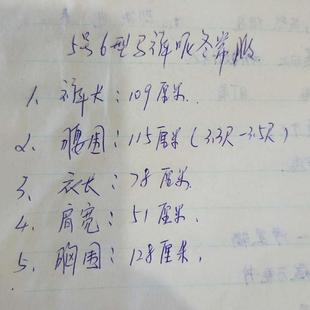 5号6型马裤呢冬常服
1、裤长：109厘米.
2、腰围：115厘米（3.3尺-3.5尺）
3、衣长：78厘米.
4、肩宽：51厘米.
5、胸围：128厘米.